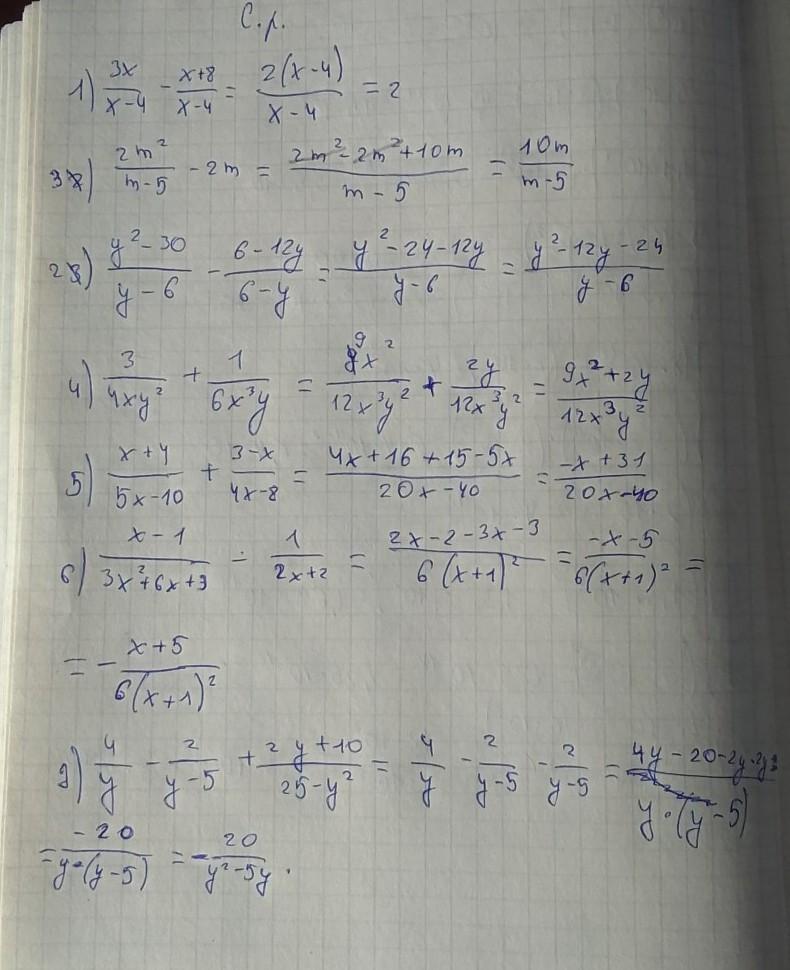 С.р.
1) 3x/(x-4) - (x+8)/(x-4) = 2(x-4)/(x-4) = 2
3) 2m²/(m-5) - 2m = (2m²-2m²+10m)/(m-5) = 10m/(m-5)
2) (y²-30)/(y-6) - (6-12y)/(6-y) = (y²-24-12y)/(y-6) = (y²-12y-24)/(y-6)
4) 3/(4xy²) + 1/(6x³y) = 9x²/(12x³y²) + 2y/(12x³y²) = (9x²+2y)/(12x³y²)
5) (x+4)/(5x-10) + (3-x)/(4x-8) = (4x+16+15-5x)/(20x-40) = (-x+31)/(20x-40)
6) (x-1)/(3x²+6x+3) - 1/(2x+2) = (2x-2-3x-3)/(6(x+1)²) = (-x-5)/(6(x+1)²) =
= - (x+5)/(6(x+1)²)
4/y - 2/(y-5) + (2y+10)/(25-y²) = 4/y - 2/(y-5) - 2/(y-5) = (4y-20-2y-2y)/(y·(y-5))
= -20/(y·(y-5)) = - 20/(y²-5y).